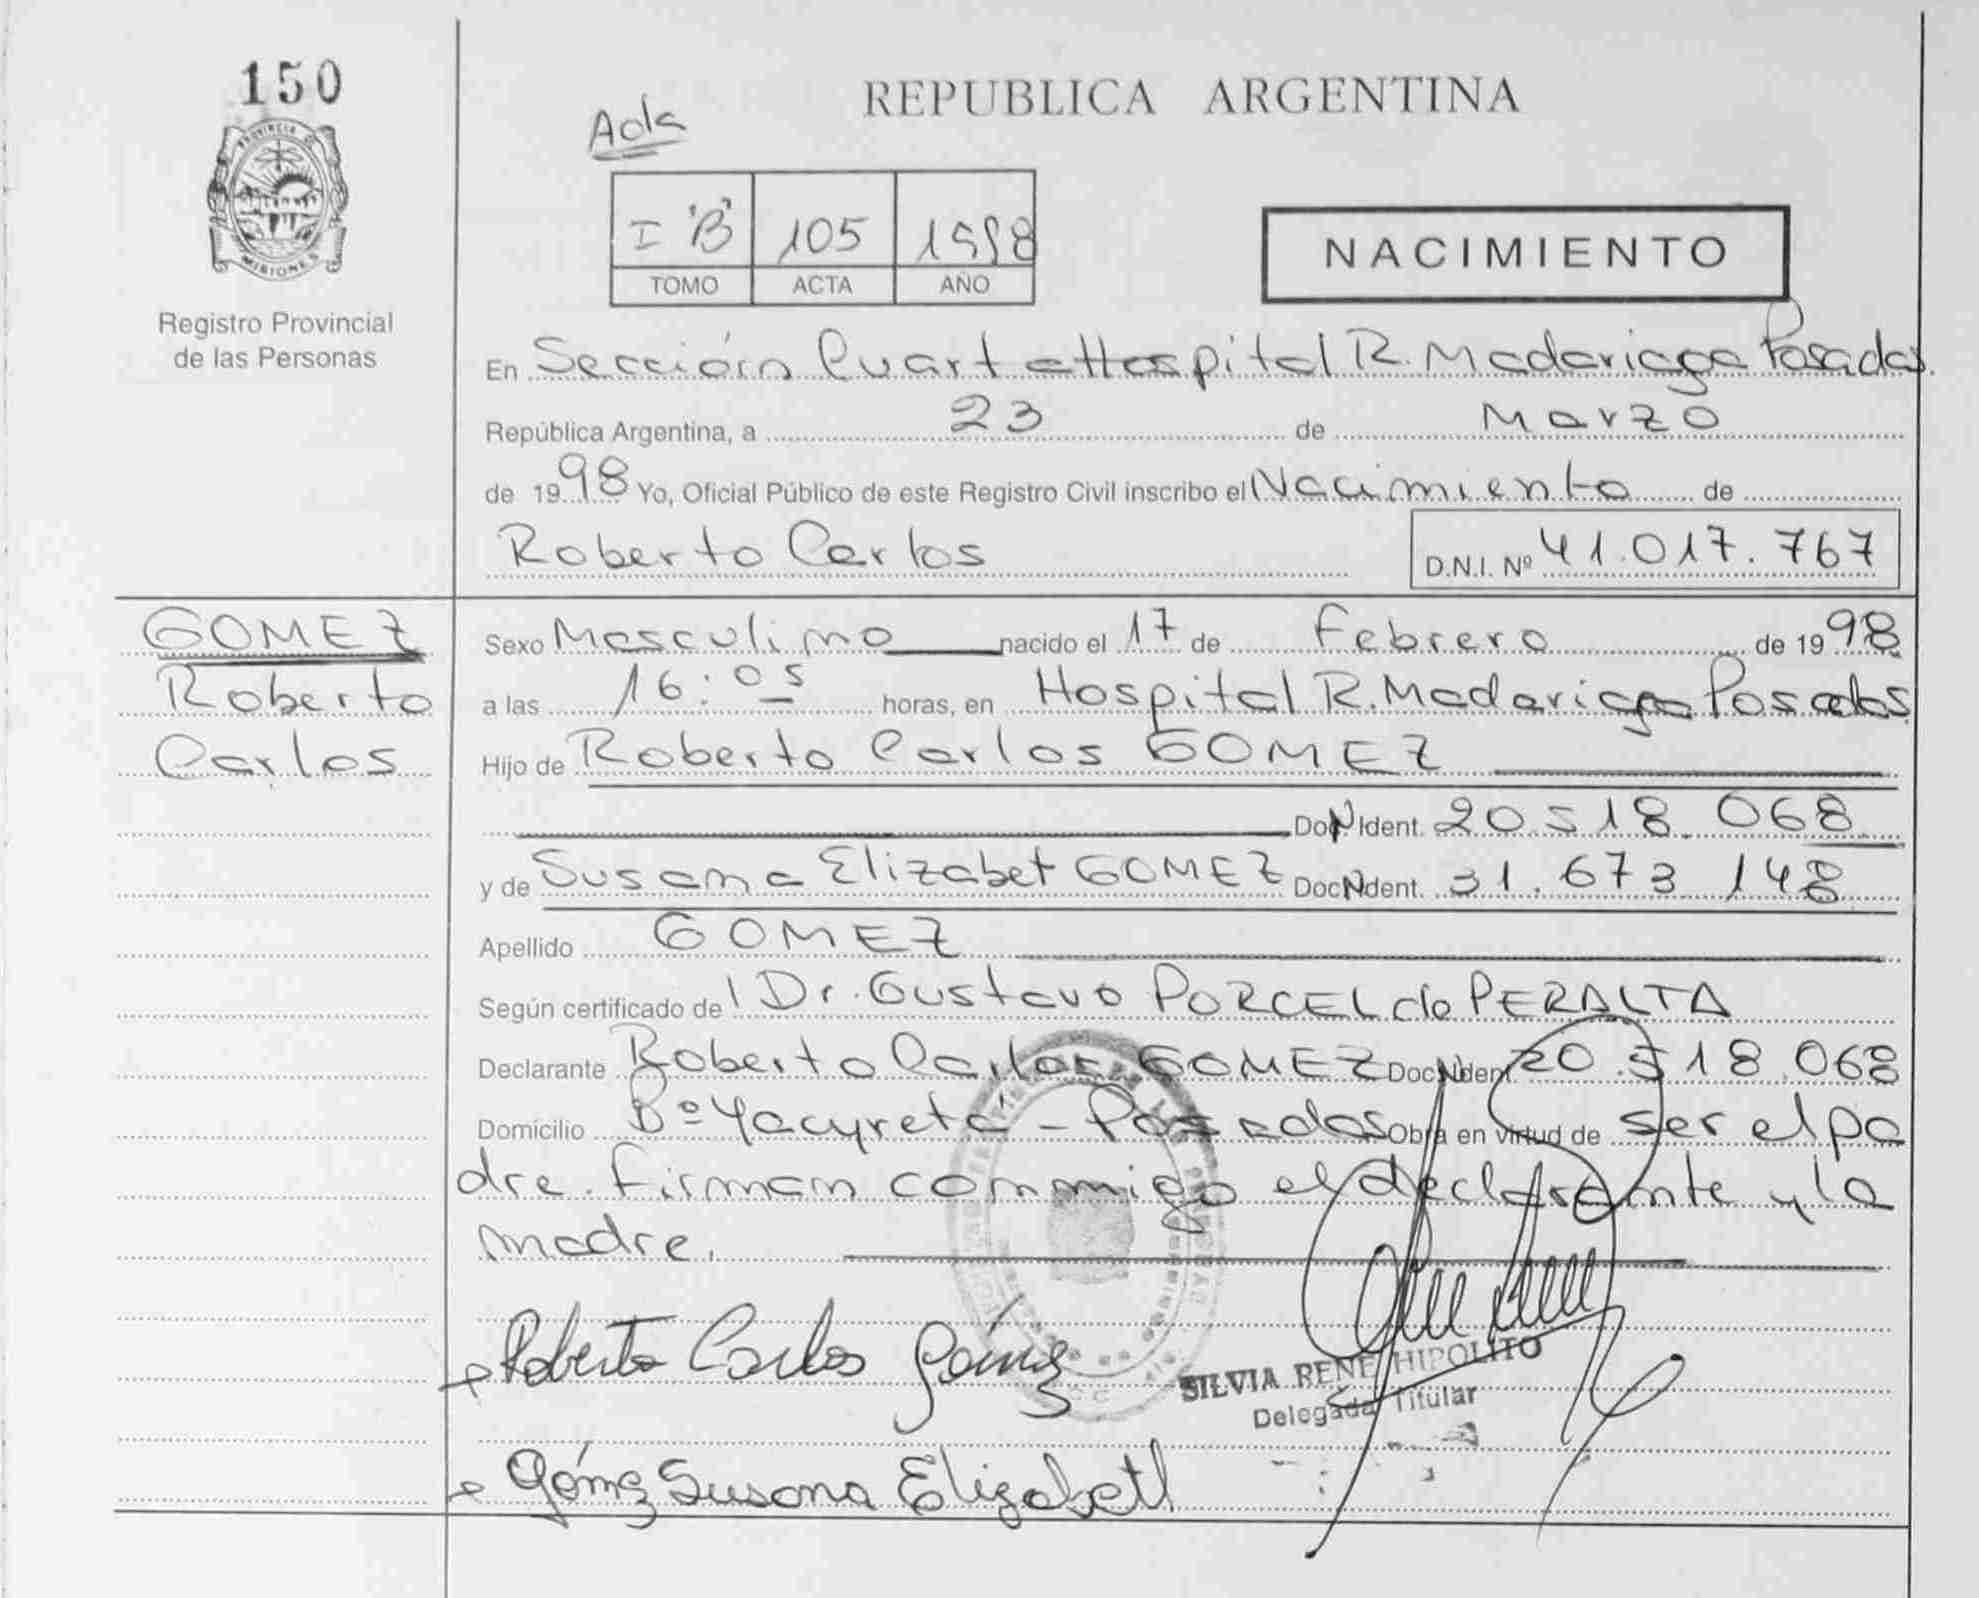 150
REPUBLICA ARGENTINA
PROVINCIA DE
MISIONES
Registro Provincial
de las Personas
I "B" 105 1998
TOMO ACTA AÑO
NACIMIENTO
En Sección Cuarta Hospital R. Madariaga Posadas.
República Argentina, a 23 de Marzo
de 1998 Yo, Oficial Público de este Registro Civil inscribo el Nacimiento de
Roberto Carlos D.N.I. Nº 41.017.767
GOMEZ
Roberto
Carlos
Sexo Masculino nacido el 17 de Febrero de 1998
a las 16:05 horas, en Hospital R. Madariaga Posadas
Hijo de Roberto Carlos GOMEZ
Doc. Ident. 20.518.068
y de Susana Elizabet GOMEZ Doc. Ident. 31.673.148
Apellido GOMEZ
Según certificado de Dr. Gustavo PORCEL de PERALTA
Declarante Roberto Carlos GOMEZ Doc. Ident. 20.518.068
Domicilio Bº Yacyretá - Posadas Obra en virtud de ser el pa
dre. Firman conmigo el declarante y la
madre.
Roberto Carlos Gómez
SILVIA RENE HIPOLITO
Delegada Titular
Gómez Susana Elizabeth